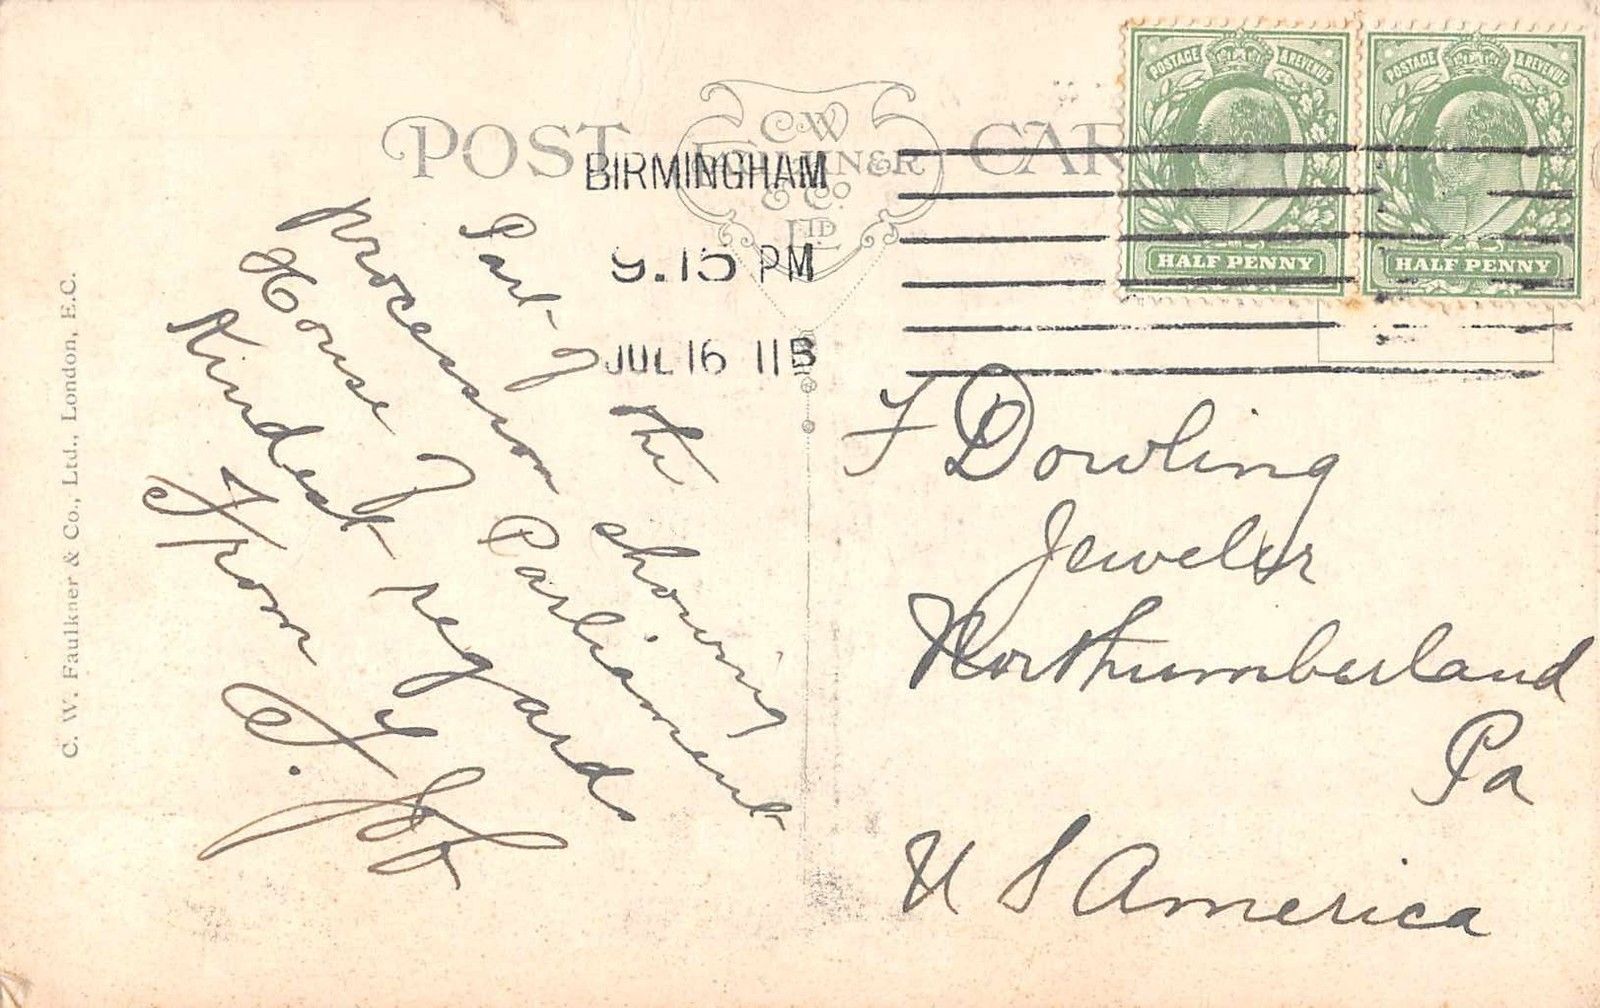 POST CARD
C.W.
FAULKNER
& Co.
LTD.
BIRMINGHAM
9.15 PM
JUL 16 11 B
POSTAGE & REVENUE
HALF PENNY
POSTAGE & REVENUE
HALF PENNY
C. W. Faulkner & Co., Ltd., London, E.C.
Part of the
procession showing
House of Parliament
Kindest regards
From
F Dowling
Jeweler
Northumberland
Pa
U S America